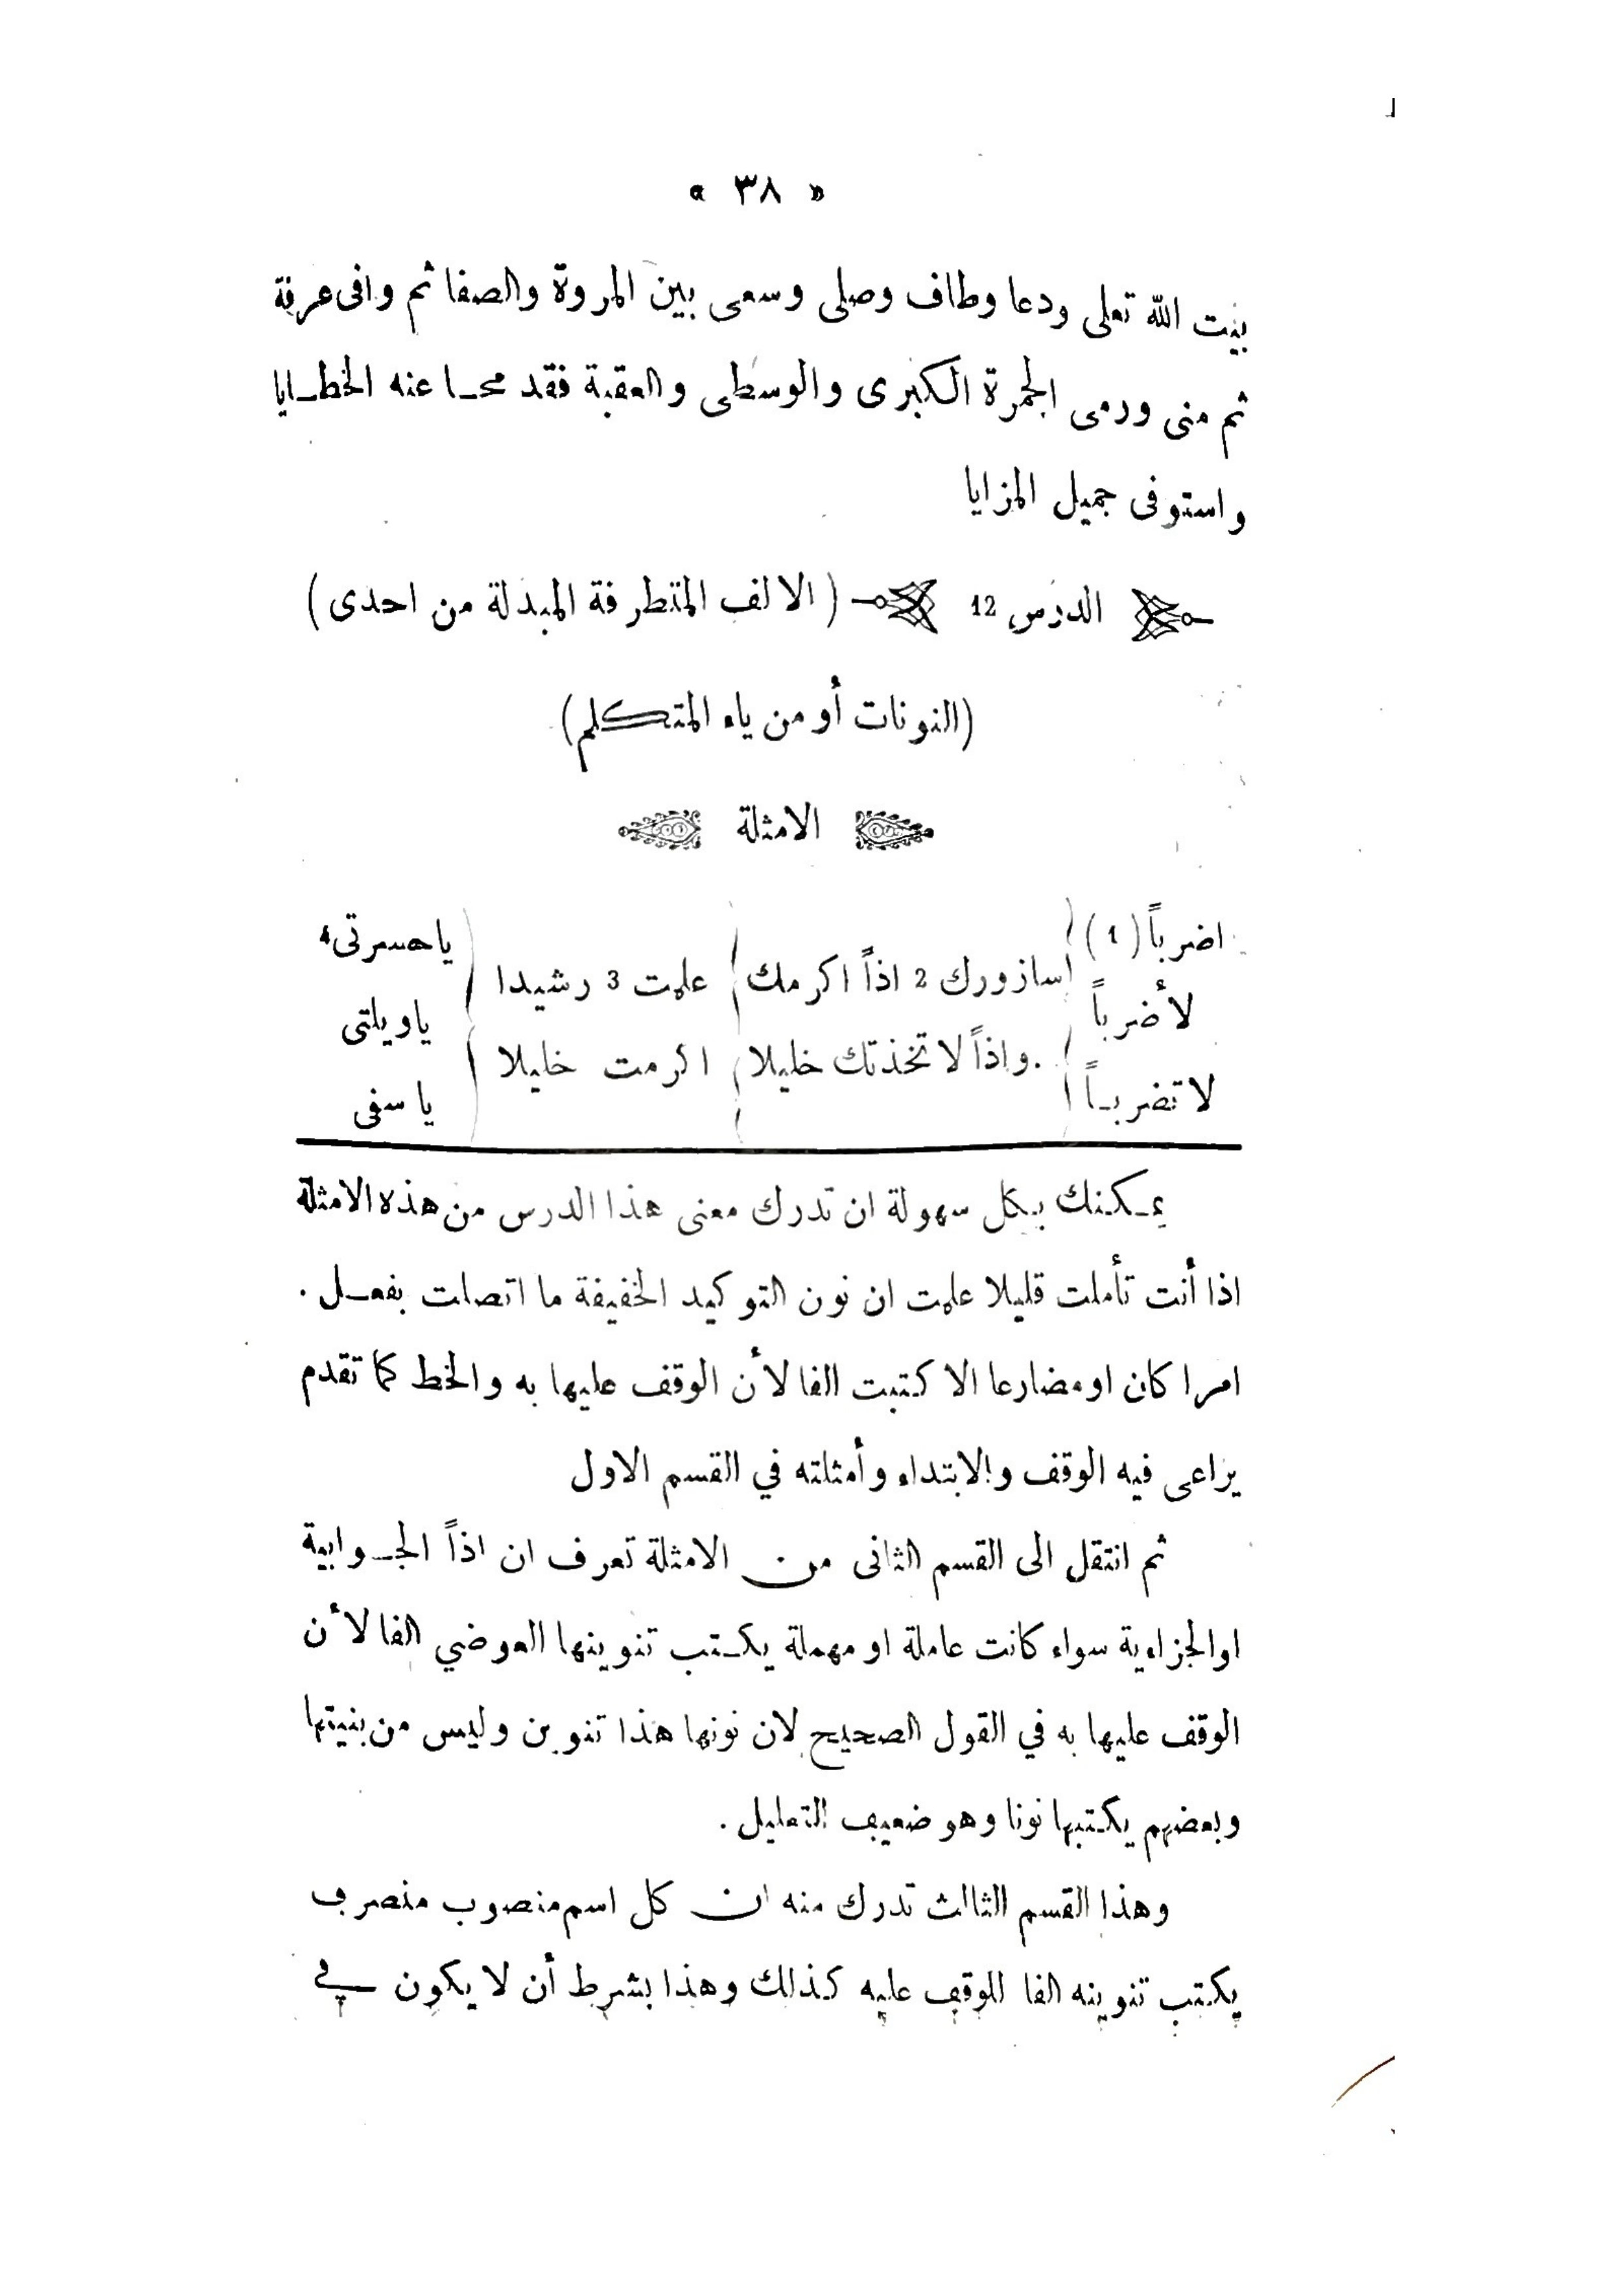 « ٣٨ »
بيت الله تعلى ودعا وطاف وصلى وسعى بين المروة والصفا ثم وافى عرفة
ثم منى ورمى الجمرة الكبرى والوسطى والعقبة فقد محا عنه الخطايا
واستوفى جميل المزايا
الدرس 12 (الالف المتطرفة المبدلة من احدى)
(النونات أو من ياء المتكلم)
الامثلة
اضرباً (1)
لأضرباً
لا تضرباً
سازورك 2 اذاً اكرمك
واذاً لا تخذتك خليلا
علمت 3 رشيدا
اكرمت خليلا
ياحسرتى 4
ياويلتى
يا سفى
يمكنك بكل سهولة ان تدرك معنى هذا الدرس من هذه الامثلة
اذا أنت تأملت قليلا علمت ان نون التوكيد الخفيفة ما اتصلت بفعل .
امرا كان او مضارعا الا كتبت الفا لأن الوقف عليها به والخط كما تقدم
يراعى فيه الوقف والابتداء وأمثلته في القسم الاول
ثم انتقل الى القسم الثانى من الامثلة تعرف ان اذاً الجوابية
او الجزاءية سواء كانت عاملة او مهملة يكتب تنوينها العوضي الفا لأن
الوقف عليها به في القول الصحيح لان نونها هذا تنوين وليس من بنيتها
وبعضهم يكتبها نونا وهو ضعيف التعليل .
وهذا القسم الثالث تدرك منه ان كل اسم منصوب منصرف
يكتب تنوينه الفا للوقف عليه كذلك وهذا بشرط أن لا يكون في